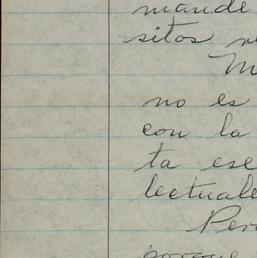 mande
sitos
M
no es
con la
ta ese
lectuale
Per
porque